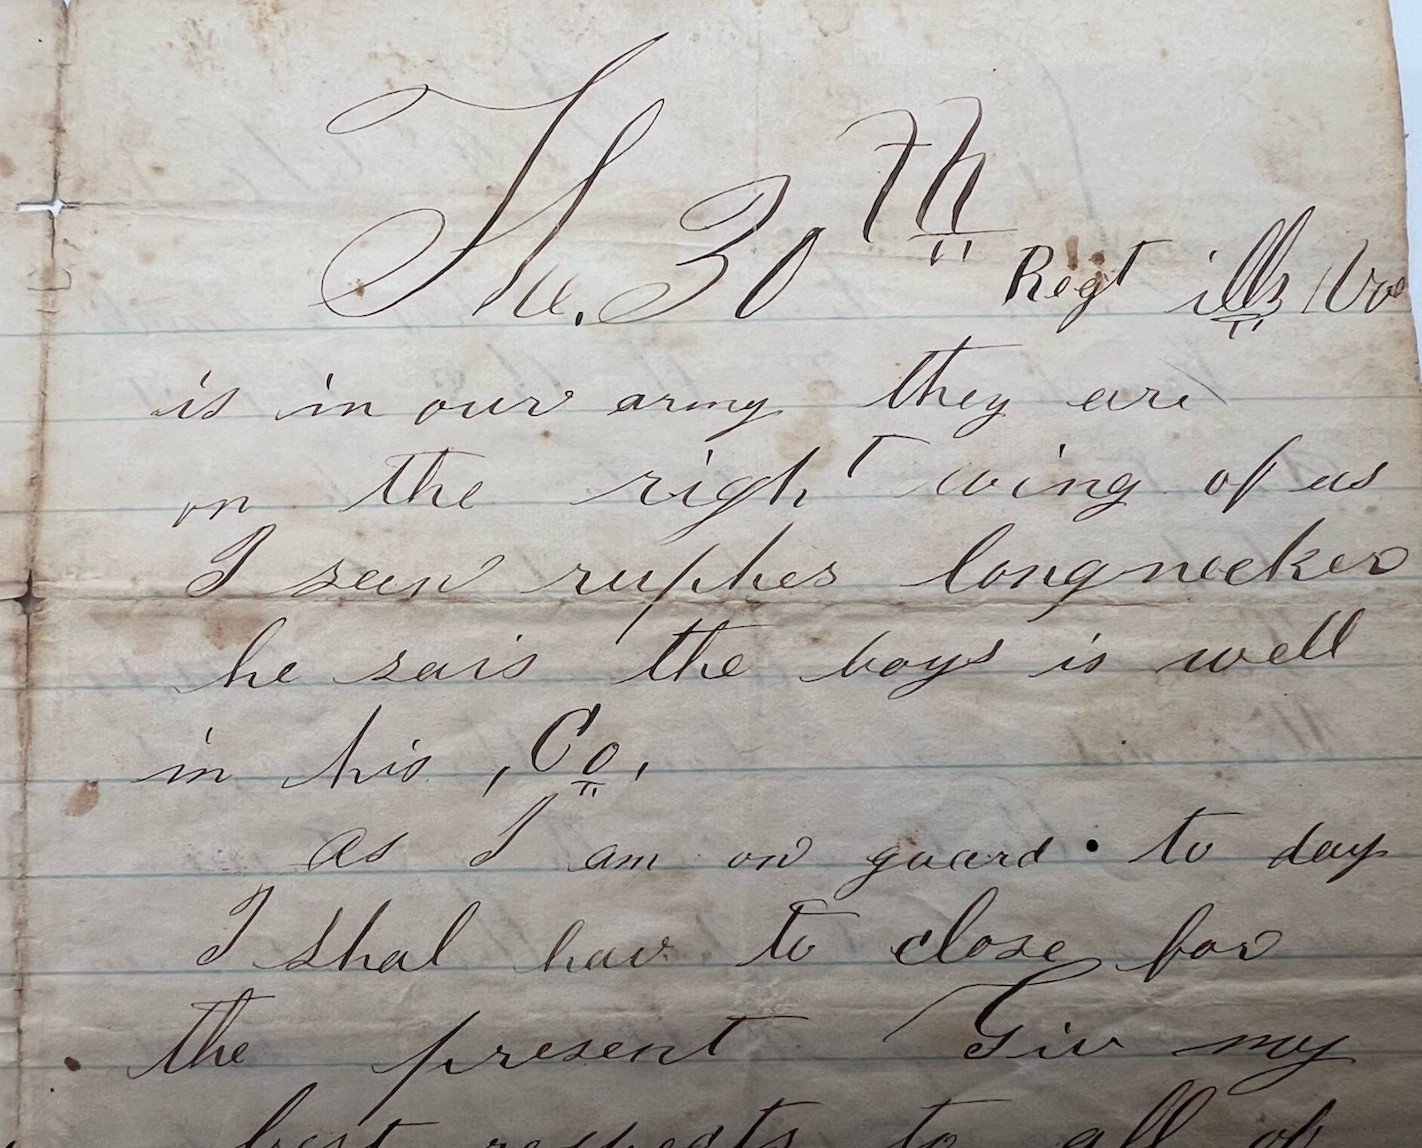 The. 30th Regt ills Vo
is in our army they are
on the right wing of us
I seen ruphes longnecker
he sais the boys is well
in his , Co ,
as I am on guard • to day
I shal hav to close for
the present Giv my
best respects to all of